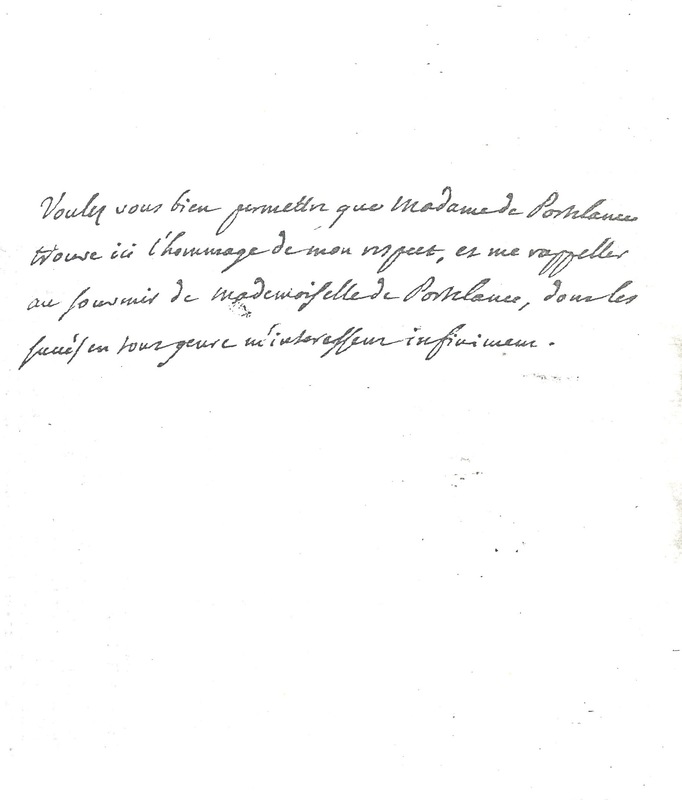 Voulez vous bien permettre que Madame de Portelance
trouve ici l'hommage de mon respect, et me rappeller
au souvenir de mademoiselle de Portelance, dont les
succès en tout genre m'interessent infiniment.